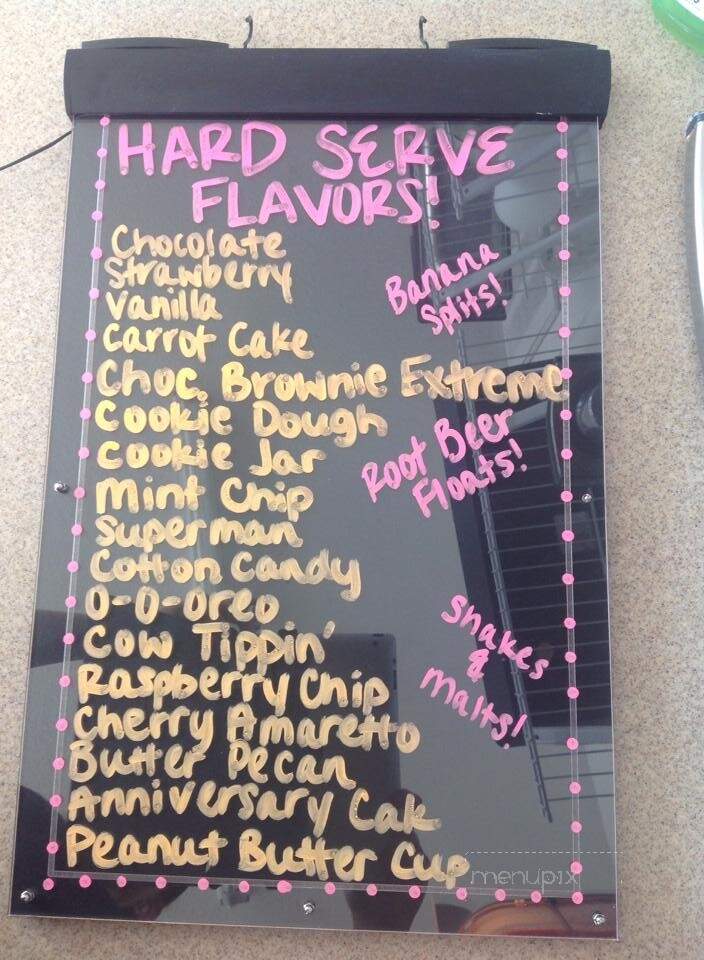 HARD SERVE
FLAVORS!
Chocolate
Strawberry
Vanilla
Carrot Cake
Choc. Brownie Extreme
Cookie Dough
Cookie Jar
Mint Chip
Superman
Cotton Candy
O-O-Oreo
Cow Tippin'
Raspberry Chip
Cherry Amaretto
Butter Pecan
Anniversary Cak
Peanut Butter Cup
Banana
Splits!
Root Beer
Floats!
Shakes
&
Malts!
menupix